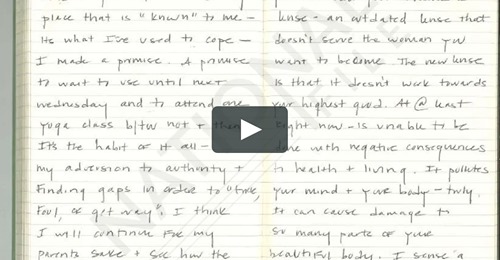 place that is "known" to me -
Its what I've used to cope -
I made a promise. A promise
to want to use until next
wednesday and to attend one
yoga class b/tw not + then
It's the habit of it all -
my adversion to authority +
Finding gaps in order to
Fool, or get way". I think
I will continue for my
parents sake + see how the
lense - an outdated lense that
doesn't serve the woman you
want to become. The new lense
is that it doesn't work towards
your highest good. At @ least
right now - is unable to be
done with negative consequences
to health + living. It pollutes
your mind + your body - truly.
It can cause damage to
so many parts of your
beautiful body. I sense a
NATIONAL